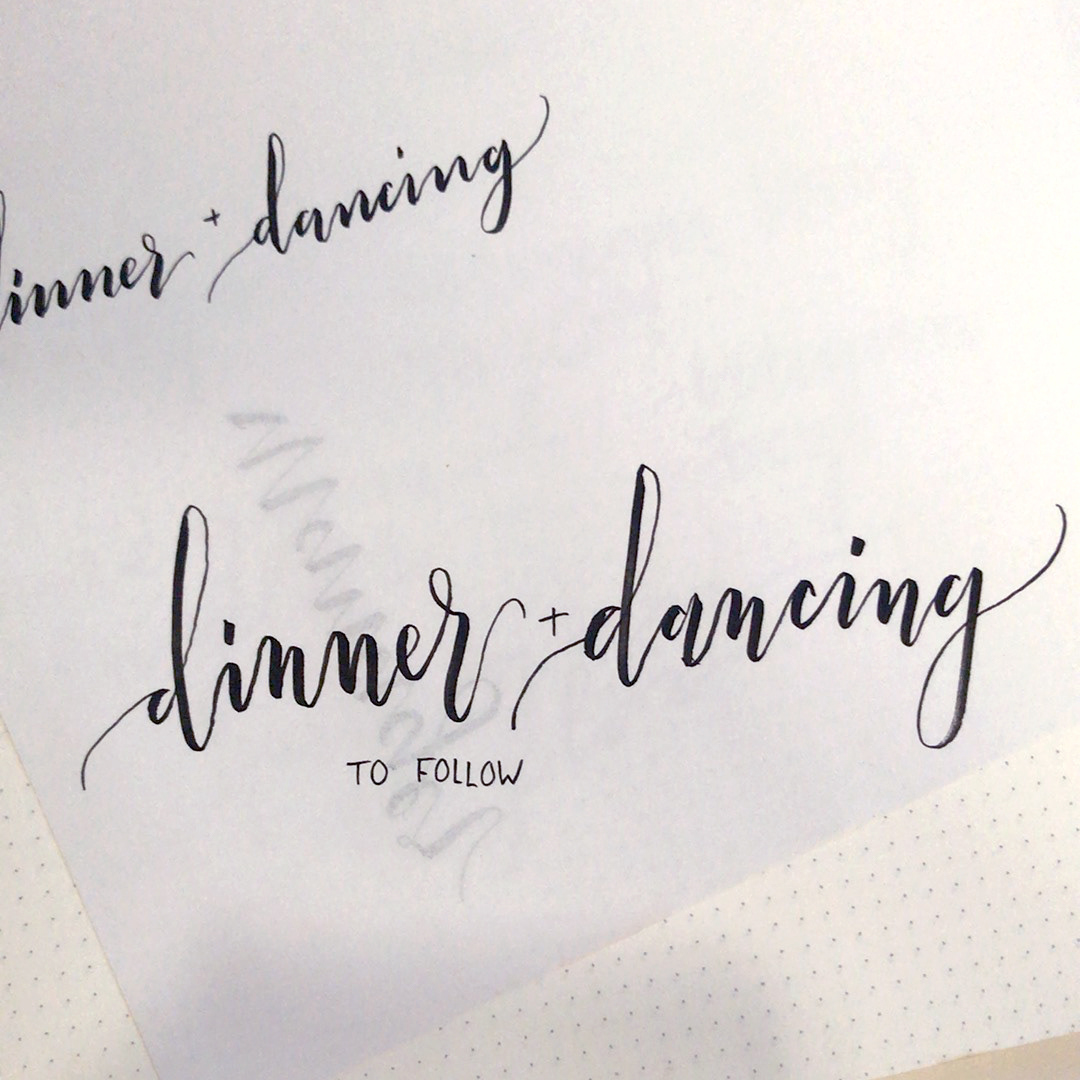 dinner + dancing
dinner + dancing
TO FOLLOW